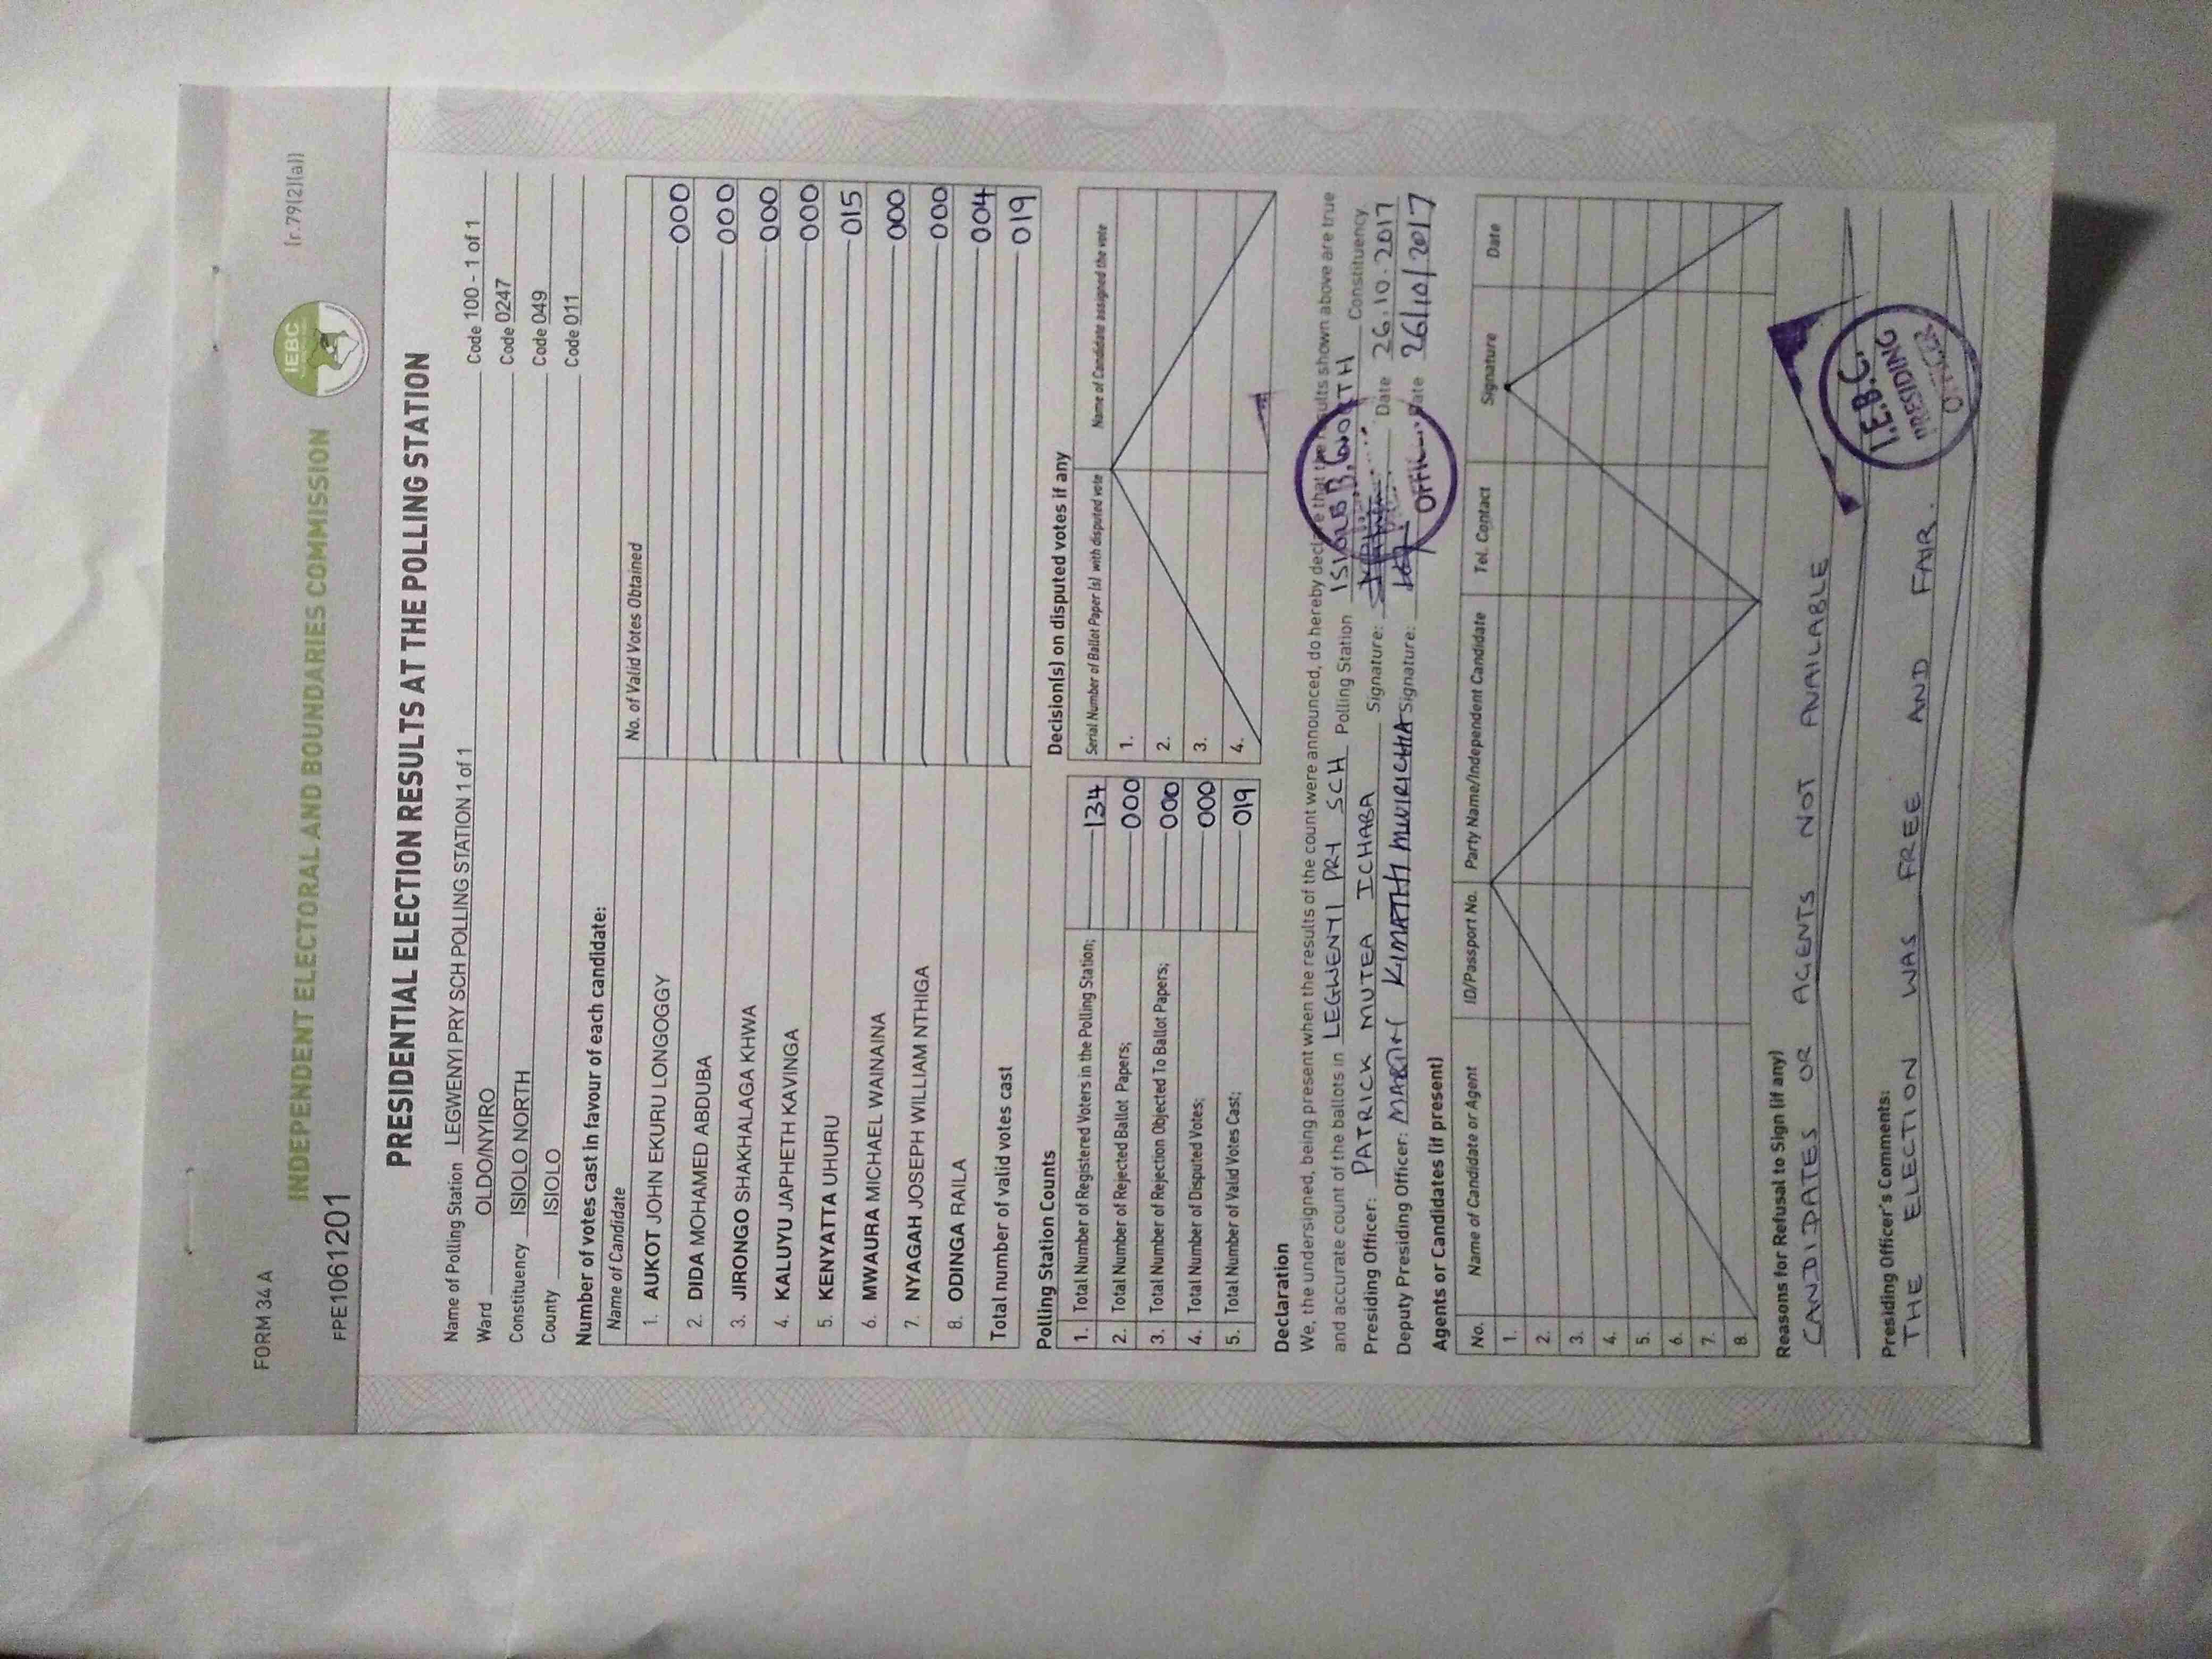 FORM 34 A
[r.79(2)(a)]
INDEPENDENT ELECTORAL AND BOUNDARIES COMMISSION
IEBC
FPE1061201
PRESIDENTIAL ELECTION RESULTS AT THE POLLING STATION
Name of Polling Station LEGWENYI PRY SCH POLLING STATION 1 of 1 Code 100 - 1 of 1
Ward OLDO/NYIRO Code 0247
Constituency ISIOLO NORTH Code 049
County ISIOLO Code 011
Number of votes cast in favour of each candidate:
Name of Candidate No. of Valid Votes Obtained
1. AUKOT JOHN EKURU LONGOGGY 000
2. DIDA MOHAMED ABDUBA 000
3. JIRONGO SHAKHALAGA KHWA 000
4. KALUYU JAPHETH KAVINGA 000
5. KENYATTA UHURU 015
6. MWAURA MICHAEL WAINAINA 000
7. NYAGAH JOSEPH WILLIAM NTHIGA 000
8. ODINGA RAILA 004
Total number of valid votes cast 019
Polling Station Counts
1. Total Number of Registered Voters in the Polling Station; 134
2. Total Number of Rejected Ballot Papers; 000
3. Total Number of Rejection Objected To Ballot Papers; 000
4. Total Number of Disputed Votes; 000
5. Total Number of Valid Votes Cast; 019
Decision(s) on disputed votes if any
Serial Number of Ballot Paper (s) with disputed vote Name of Candidate assigned the vote
1.
2.
3.
4.
Declaration
We, the undersigned, being present when the results of the count were announced, do hereby declare that the results shown above are true
and accurate count of the ballots in LEGWENYI PRY SCH Polling Station ISIOLO NORTH Constituency.
Presiding Officer: PATRICK MUTEA ICHABA Signature: Date 26.10.2017
Deputy Presiding Officer: KIMATHI MWIRICHIA Signature: Date 26/10/2017
Agents or Candidates (if present)
No. Name of Candidate or Agent ID/Passport No. Party Name/Independent Candidate Tel. Contact Signature Date
1.
2.
3.
4.
5.
6.
7.
8.
Reasons for Refusal to Sign (if any)
CANDIDATES OR AGENTS NOT AVAILABLE
Presiding Officer's Comments:
THE ELECTION WAS FREE AND FAIR.
I.E.B.C.
PRESIDING
OFFICER